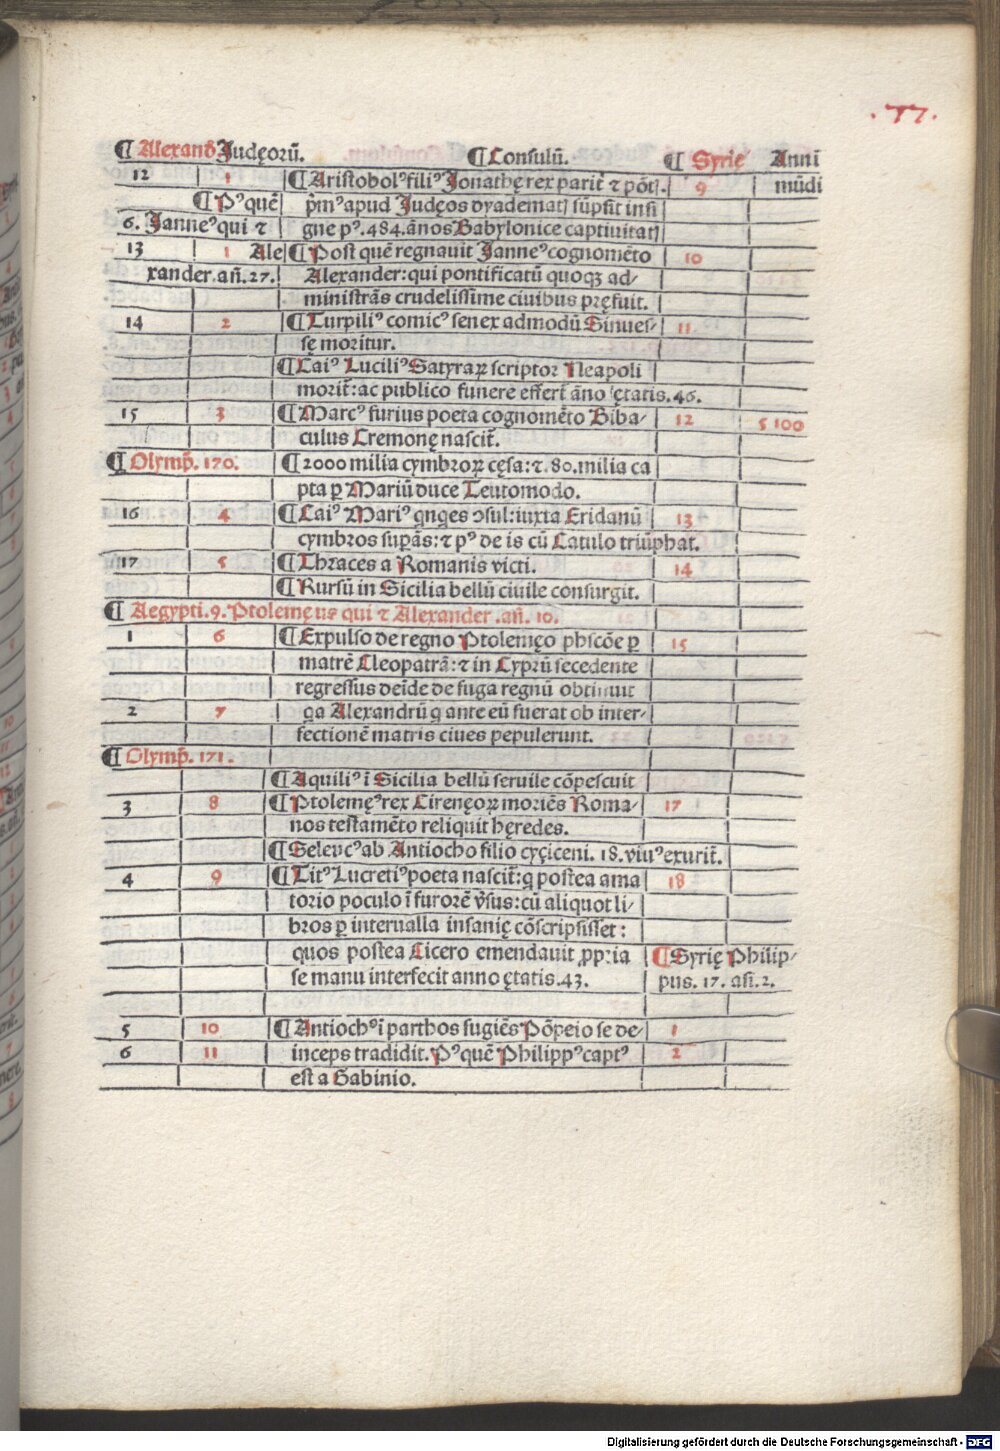 .77.
¶ Alexanđ Judęorū. ¶ Consulū. ¶ Syrię Anni
12 1 ¶ Aristobolꝰ filiꝰ Jonathę rex parit̃ ⁊ põt. 9 mūdi
¶ Pꝰ quē p̃mꝰ apud Judęos dyadematꝭ sūpsit insi
6. Janneꝰ qui ⁊ gne pꝰ. 484. ānos Babylonice captiuitatꝭ
13 1 Ale ¶ Post quē regnauit Janneꝰ cognomēto 10
xander. añ. 27. Alexander: qui pontificatū quoqꝫ ad-
ministrās crudelissime ciuibus pręfuit.
14 2 ¶ Turpiliꝰ comicꝰ senex admodū Sinues- 11
sę moritur.
¶ Caiꝰ Luciliꝰ Satyraꝝ scriptor Neapoli
morit̃: ac publico funere effert̃ āno ętatis. 46.
15 3 ¶ Marcꝰ furius poeta cognomēto Biba- 12 5100
culus Cremonę nascit̃.
¶ Olymp̃. 170. ¶ 2000 milia cymbroꝝ cęsa: ⁊. 80. milia ca
pta ꝑ Mariū duce Teutomodo.
16 4 ¶ Caiꝰ Mariꝰ qnqes ↄsul: iuxta Eridanū 13
cymbros supās: ⁊ pꝰ de is cū Catulo triūphat.
17 5 ¶ Thraces a Romanis victi. 14
¶ Rursū in Sicilia bellū ciuile consurgit.
¶ Aegypti. 9. Ptolemęus qui ⁊ Alexander. añ. 10.
1 6 ¶ Expulso de regno Ptolemęo phscōe ꝑ 15
matrē Cleopatrā: ⁊ in Cyprū secedente
regressus deīde de fuga regnū obtinuit
2 7 qa Alexandrū q ante eū fuerat ob inter-
fectionē matris ciues pepulerunt.
¶ Olymp̃. 171.
¶ Aquiliꝰ ī Sicilia bellū seruile cōpescuit
3 8 ¶ Ptolemęꝰ rex Cirenęoꝝ moriēs Roma- 17
nos testamēto reliquit hęredes.
¶ Seleucꝰ ab Antiocho filio cyçiceni. 18. viuꝰ exurit̃.
4 9 ¶ Titꝰ Lucretiꝰ poeta nascit̃: q postea ama 18
torio poculo ī furorē v̄sus: cū aliquot li-
bros ꝑ interualla insanię cōscripsisset:
quos postea Cicero emendauit ꝓpria ¶ Syrię Philip-
se manu interfecit anno ętatis. 43. pus. 17. añ. 2.
5 10 ¶ Antiochꝰ ī parthos fugiēs Pōpeio se de- 1
6 11 inceps tradidit. Pꝰ quē Philippꝰ captꝰ 2
est a Gabinio.
Digitalisierung gefördert durch die Deutsche Forschungsgemeinschaft - DFG